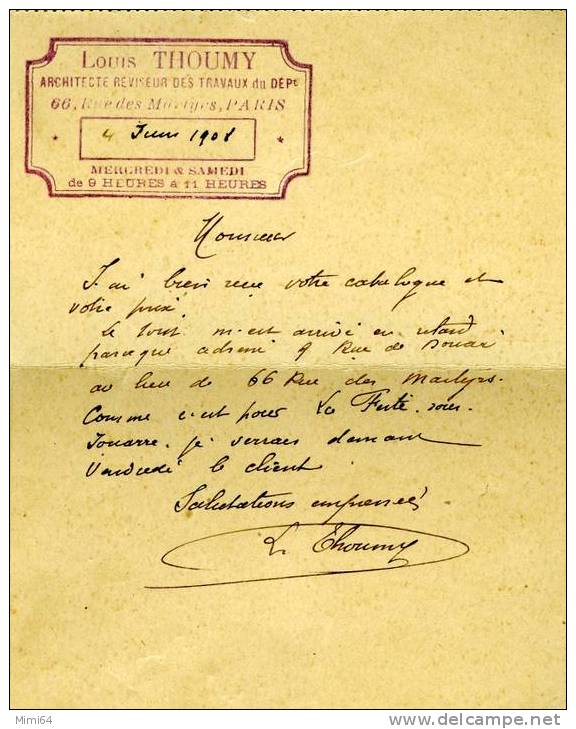 Louis THOUMY
ARCHITECTE RÉVISEUR DES TRAVAUX du DÉPt
66, Rue des Martyrs, PARIS
4 Juin 1908
MERCREDI & SAMEDI
de 9 HEURES à 11 HEURES
Monsieur
J'ai bien reçu votre catalogue et
votre prix
Le tout m'est arrivé en retard
parceque adressé 9 Rue de Douai
au lieu de 66 Rue des Martyrs.
Comme c'est pour La Ferté-sous-
Jouarre. je verrai demain
Vendredi le client
Salutations empressées
L. Thoumy
Mimi64
delcampe.net